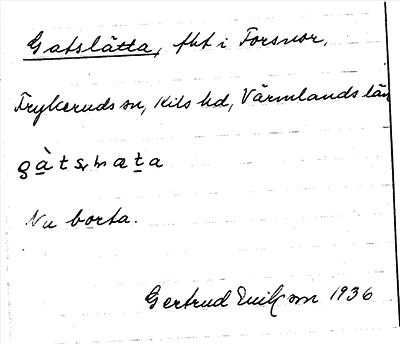 Gatslätta, fht i Forsnor,
Frykeruds sn, Kils hd, Värmlands län
Nu borta.
Gertrud Ericson 1936